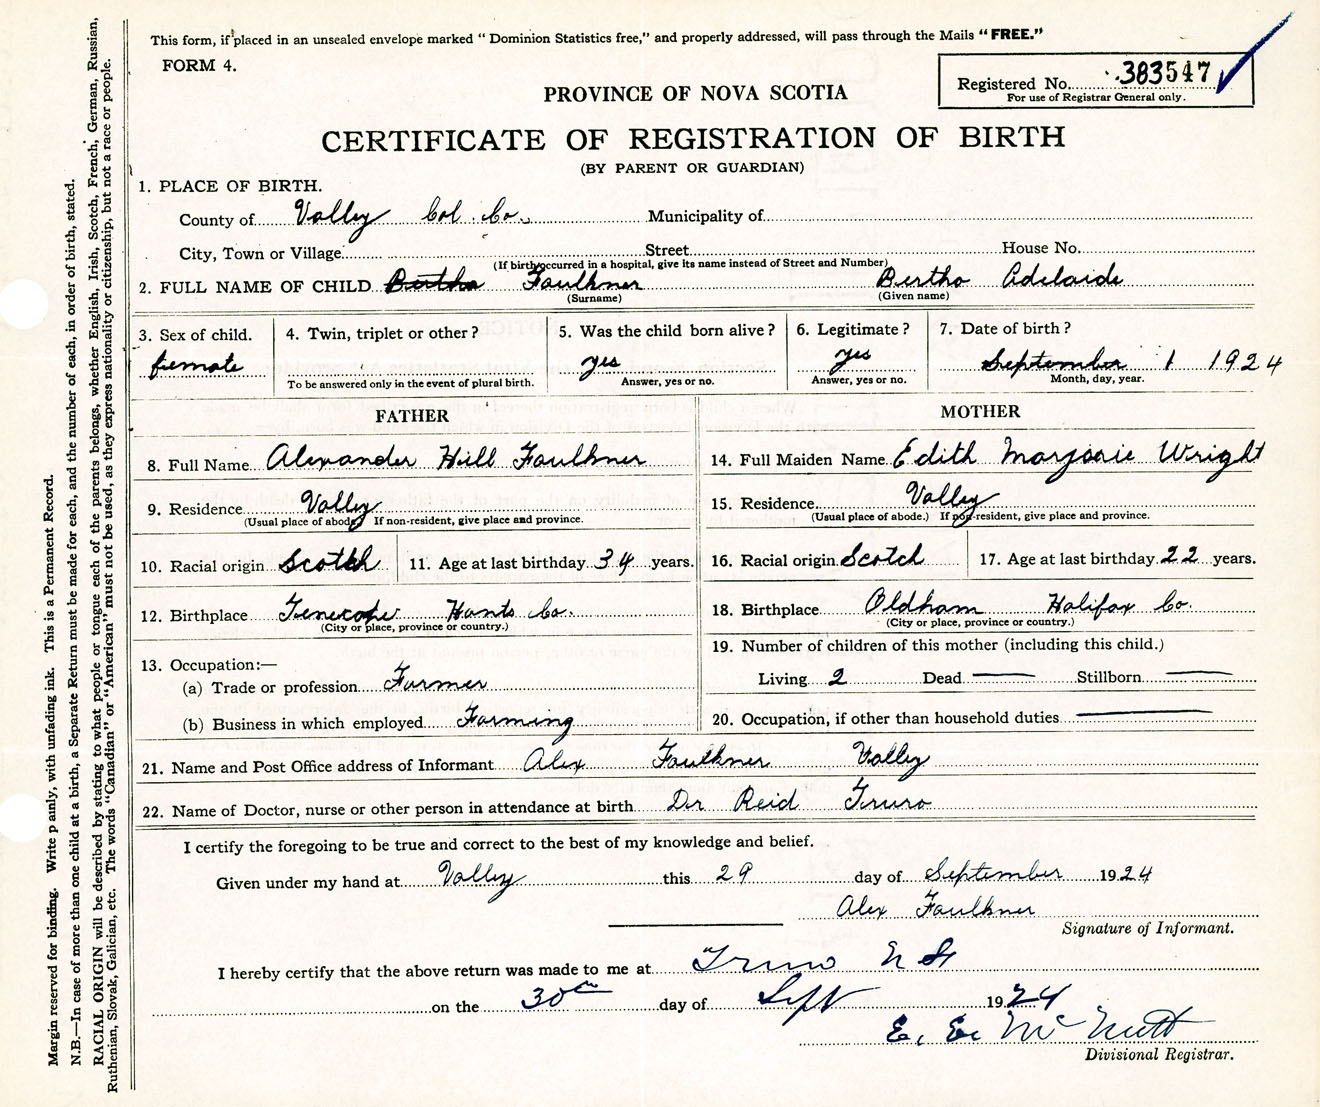 This form, if placed in an unsealed envelope marked " Dominion Statistics free," and properly addressed, will pass through the Mails "FREE."
FORM 4.
Registered No. 383547
For use of Registrar General only.
PROVINCE OF NOVA SCOTIA
CERTIFICATE OF REGISTRATION OF BIRTH
(BY PARENT OR GUARDIAN)
1. PLACE OF BIRTH.
County of Valley Col. Co. Municipality of
City, Town or Village Street House No.
(If birth occurred in a hospital, give its name instead of Street and Number)
2. FULL NAME OF CHILD Bertha Faulkner Bertha Adelaide
(Surname) (Given name)
3. Sex of child. 4. Twin, triplet or other? 5. Was the child born alive? 6. Legitimate? 7. Date of birth?
female yes yes September 1 1924
To be answered only in the event of plural birth. Answer, yes or no. Answer, yes or no. Month, day, year.
FATHER MOTHER
8. Full Name Alexander Hill Faulkner 14. Full Maiden Name Edith Marjorie Wright
9. Residence Valley 15. Residence Valley
(Usual place of abode) If non-resident, give place and province. (Usual place of abode.) If non-resident, give place and province.
10. Racial origin Scotch 11. Age at last birthday 34 years. 16. Racial origin Scotch 17. Age at last birthday 22 years.
12. Birthplace Tenecape Hants Co. 18. Birthplace Oldham Halifax Co.
(City or place, province or country.) (City or place, province or country.)
13. Occupation:— 19. Number of children of this mother (including this child.)
(a) Trade or profession Farmer Living 2 Dead — Stillborn —
(b) Business in which employed Farming 20. Occupation, if other than household duties —
21. Name and Post Office address of Informant Alex Faulkner Valley
22. Name of Doctor, nurse or other person in attendance at birth Dr Reid Truro
I certify the foregoing to be true and correct to the best of my knowledge and belief.
Given under my hand at Valley this 29 day of September 1924
Alex Faulkner
Signature of Informant.
I hereby certify that the above return was made to me at Truro N S
on the 30th day of Sept 1924
E. E. McNutt
Divisional Registrar.
Margin reserved for binding. Write plainly, with unfading ink. This is a Permanent Record.
N.B.—In case of more than one child at a birth, a Separate Return must be made for each, and the number of each, in order of birth, stated.
RACIAL ORIGIN will be described by stating to what people or tongue each of the parents belongs, whether English, Irish, Scotch, French, German, Russian,
Ruthenian, Slovak, Galician, etc. The words "Canadian" or "American" must not be used, as they express nationality or citizenship, but not a race or people.